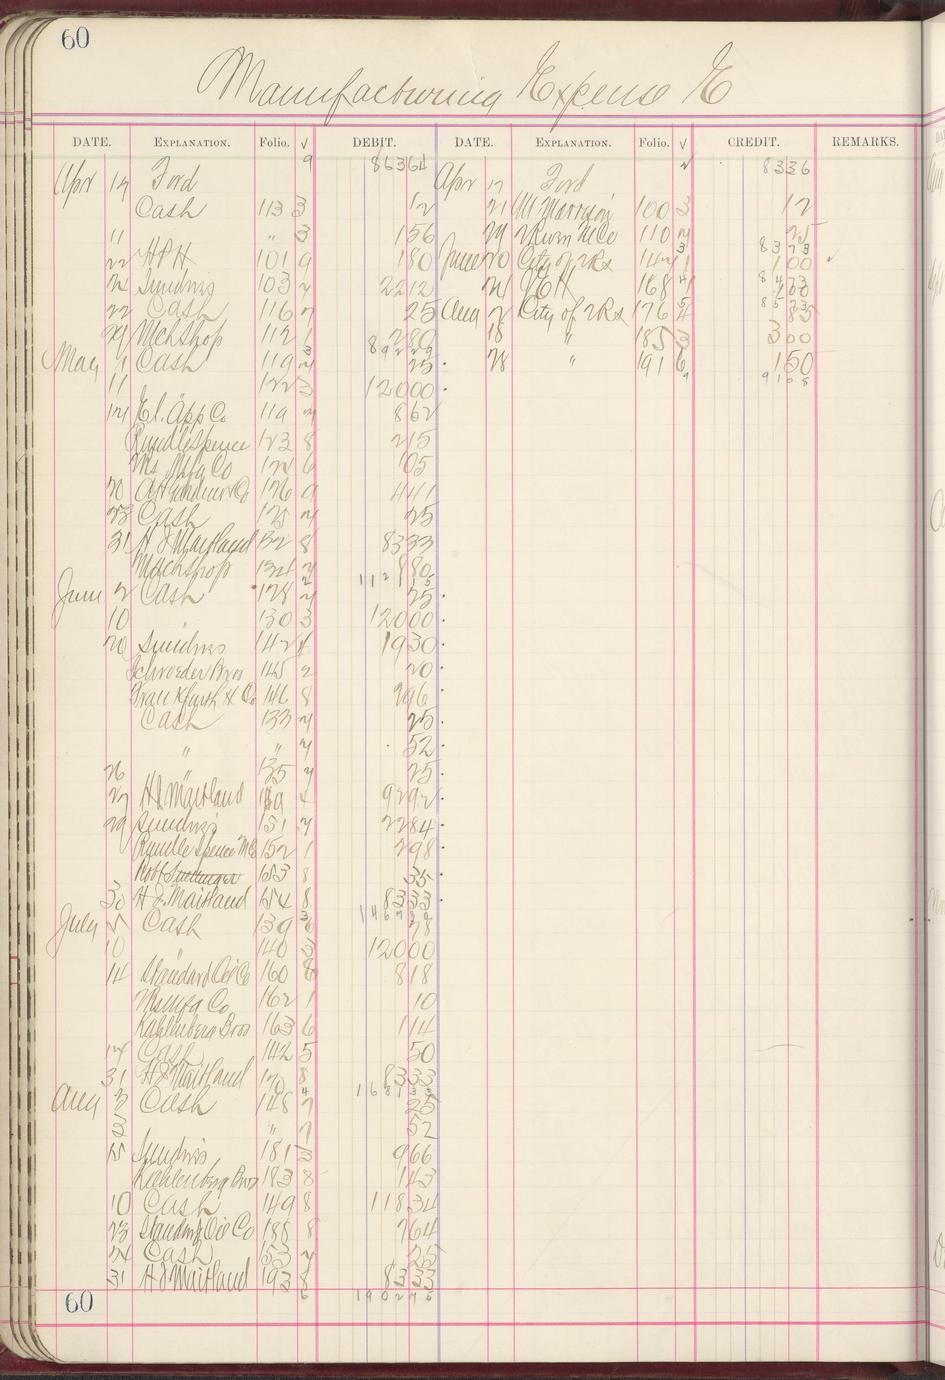 60
Manufacturing Expense E
DATE. EXPLANATION. Folio. √ DEBIT. DATE. EXPLANATION. Folio. √ CREDIT. REMARKS.
Apr 19 Ford 9 86364 Apr 17 Ford 8336
Cash 113 3 12 21 M Morrison 100 3 12
11 " 3 156 29 110 25
22 H P H 101 9 180 June 20 City of 2 Rs 8373 100
Sundries 103 2212 168 8473 100
22 Cash 116 7 25 Aug 2 City of 2 Rs 176 8573 85
29 Mchshop 112 1 280 18 " 185 3 300
May 4 Cash 119 25 28 " 191 6 150
11 122 3 12000 9108
El. App Co 119 862
Rundle Spence 123 8 215
Mfg Co 6 105
20 126 9 441
23 Cash 125 25
31 H J Maitland 132 8 8333
Machshop 880
June 2 Cash 128 25
10 130 3 12000
20 Sundries 142 1930
Schroeder Bros 145 2 20
Frankfurth H Co 146 8 296
Cash 133 25
" " 52
26 " 135 25
27 H J Maitland 9292
29 Sundries 151 2284
Rundle Spence M Co 152 1 298
Robt 153 8 35
30 H J Maitland 154 8 8333
July 5 Cash 139 6 28
10 " 140 3 12000
14 Standard Oil Co 160 8 818
Mfg Co 162 1 10
Kahlenberg Bros 163 6 114
Cash 142 5 50
31 H J Maitland 170 8 8333
Aug 3 Cash 148 7 25
3 " 7 52
15 Sundries 181 3 966
Kahlenberg Bros 183 8 143
10 Cash 149 8 11834
23 Standard Oil Co 188 8 764
24 Cash 153 25
31 H J Maitland 193 8 8333
60 6 190275